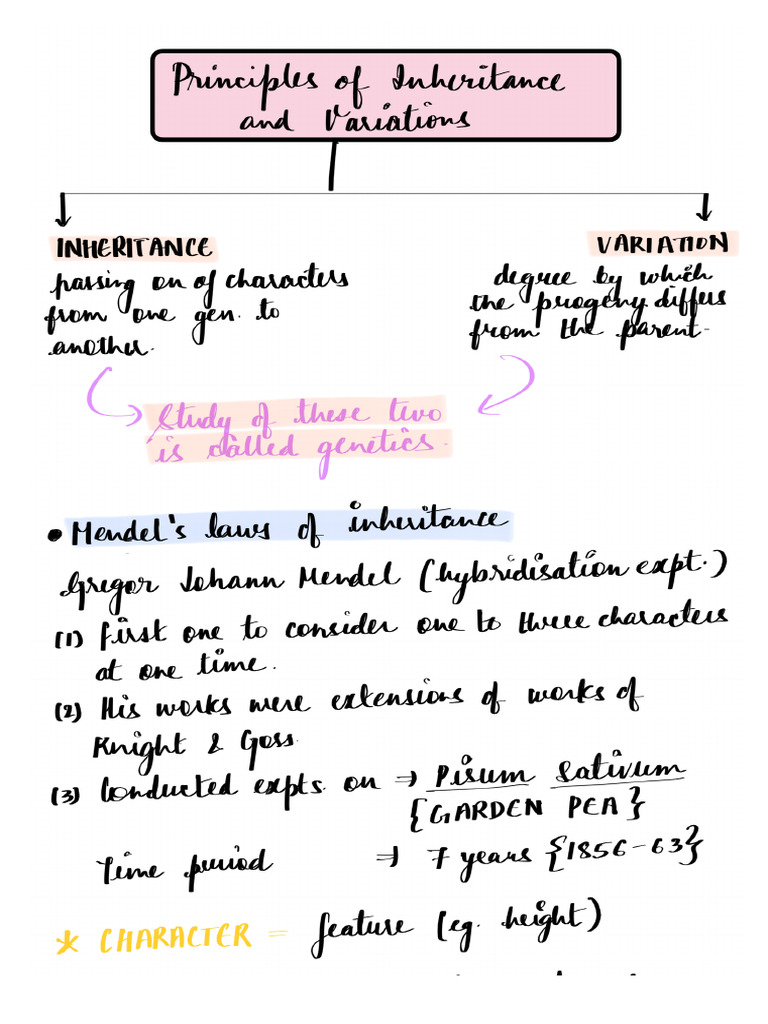 Principles of Inheritance
and Variations
INHERITANCE
passing on of characters
from one gen. to
another.
VARIATION
degree by which
the progeny differs
from the parent.
Study of these two
is called genetics.
• Mendel's laws of inheritance
Gregor Johann Mendel (hybridisation expt.)
(1) first one to consider one to three characters
at one time.
(2) His works were extensions of works of
Knight & Goss.
(3) Conducted expts. on → Pisum Sativum
{GARDEN PEA}
Time period → 7 years {1856-63}
* CHARACTER = feature (eg. height)